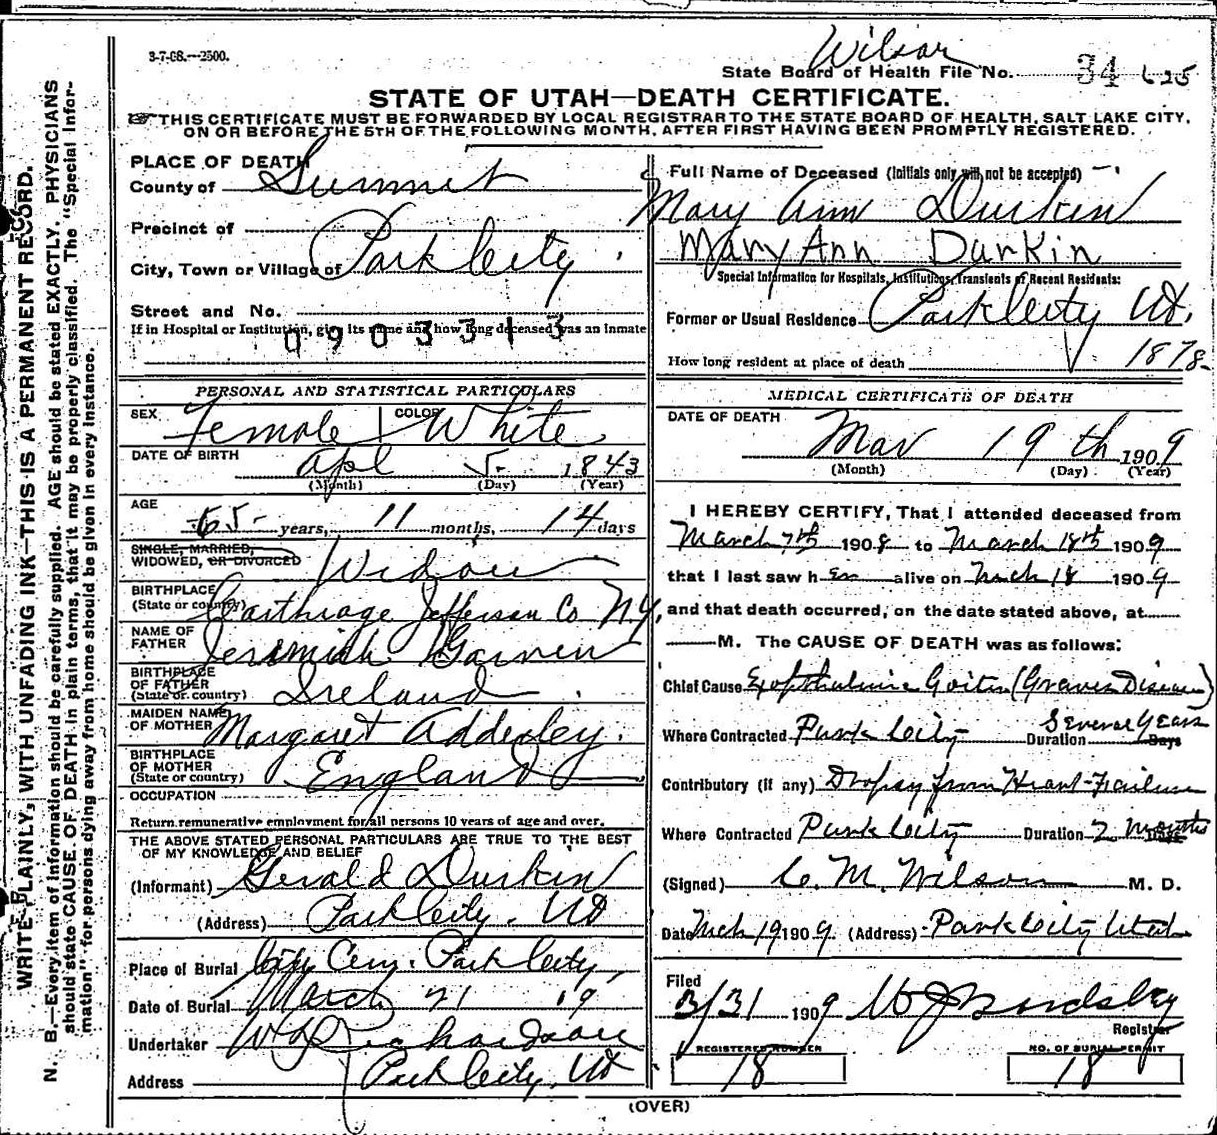 3-7-08.—2500.
Wilson
State Board of Health File No. 34 625
STATE OF UTAH—DEATH CERTIFICATE.
☞THIS CERTIFICATE MUST BE FORWARDED BY LOCAL REGISTRAR TO THE STATE BOARD OF HEALTH, SALT LAKE CITY,
ON OR BEFORE THE 5TH OF THE FOLLOWING MONTH, AFTER FIRST HAVING BEEN PROMPTLY REGISTERED.
WRITE PLAINLY, WITH UNFADING INK—THIS IS A PERMANENT RECORD.
N. B.—Every item of information should be carefully supplied. AGE should be stated EXACTLY. PHYSICIANS
should state CAUSE OF DEATH in plain terms, that it may be properly classified. The "Special Infor-
mation" for persons dying away from home should be given in every instance.
PLACE OF DEATH
County of Summit
Precinct of
City, Town or Village of Park City
Street and No.
If in Hospital or Institution, give its name and how long deceased was an Inmate
0903313
PERSONAL AND STATISTICAL PARTICULARS
SEX Female COLOR White
DATE OF BIRTH Apl 5 1843
(Month) (Day) (Year)
AGE 65 years, 11 months, 14 days
SINGLE, MARRIED,
WIDOWED, OR DIVORCED Widow
BIRTHPLACE
(State or country) Carthage Jefferson Co N.Y.
NAME OF
FATHER Jeremiah Garven
BIRTHPLACE
OF FATHER
(State or country) Ireland
MAIDEN NAME
OF MOTHER Margaret Adderley.
BIRTHPLACE
OF MOTHER
(State or country) England
OCCUPATION
Return remunerative employment for all persons 10 years of age and over.
THE ABOVE STATED PERSONAL PARTICULARS ARE TRUE TO THE BEST
OF MY KNOWLEDGE AND BELIEF
(Informant) Gerald Durkin
(Address) Park City. Ut
Place of Burial City Cem. Park City
Date of Burial March 21 '09
Undertaker W Richardson
Address Park City, Ut
Full Name of Deceased (Initials only will not be accepted)
Mary Ann Durkin
Mary Ann Durkin
Special Information for Hospitals, Institutions, Transients or Recent Residents:
Former or Usual Residence Park City Ut.
How long resident at place of death 1878-
MEDICAL CERTIFICATE OF DEATH
DATE OF DEATH
Mar 19th 1909
(Month) (Day) (Year)
I HEREBY CERTIFY, That I attended deceased from
March 7th 1908 to March 18th 1909
that I last saw h er alive on Mch 18 1909
and that death occurred, on the date stated above, at
M. The CAUSE OF DEATH was as follows:
Chief Cause Exopthalmic Goiter (Graves Disease)
Where Contracted Park City Duration Several Years Days
Contributory (if any) Dropsy from Heart-Failure
Where Contracted Park City Duration 2 Months
(Signed) C. M. Wilson M. D.
Date Mch 19 1909. (Address) Park City Utah
Filed
3/31 1909
Registrar
REGISTERED NUMBER
18
NO. OF BURIAL PERMIT
18
(OVER)